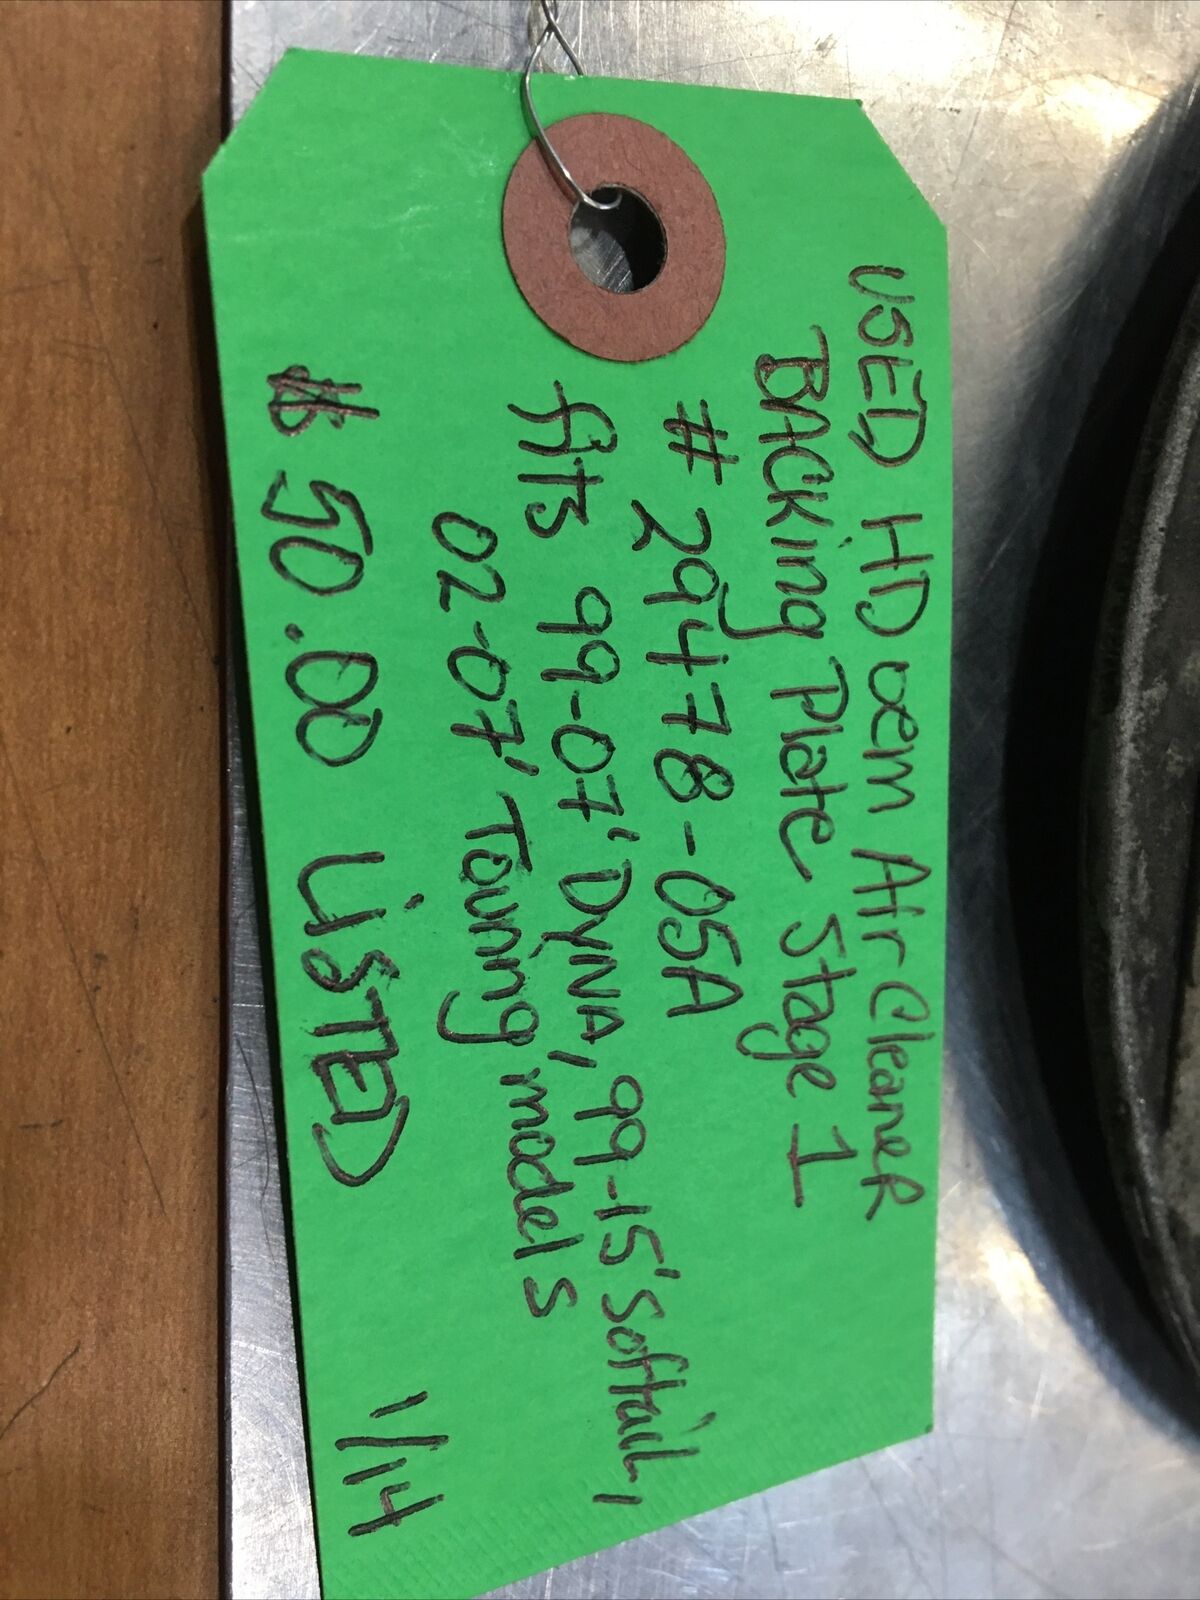 USED HD oem Air CleaneR
BACKing Plate Stage 1
# 29478-05A
fits 99-07' DyNA, 99-15' Softail,
02-07' Touring models
$ 50.00 LiSTED 1/14